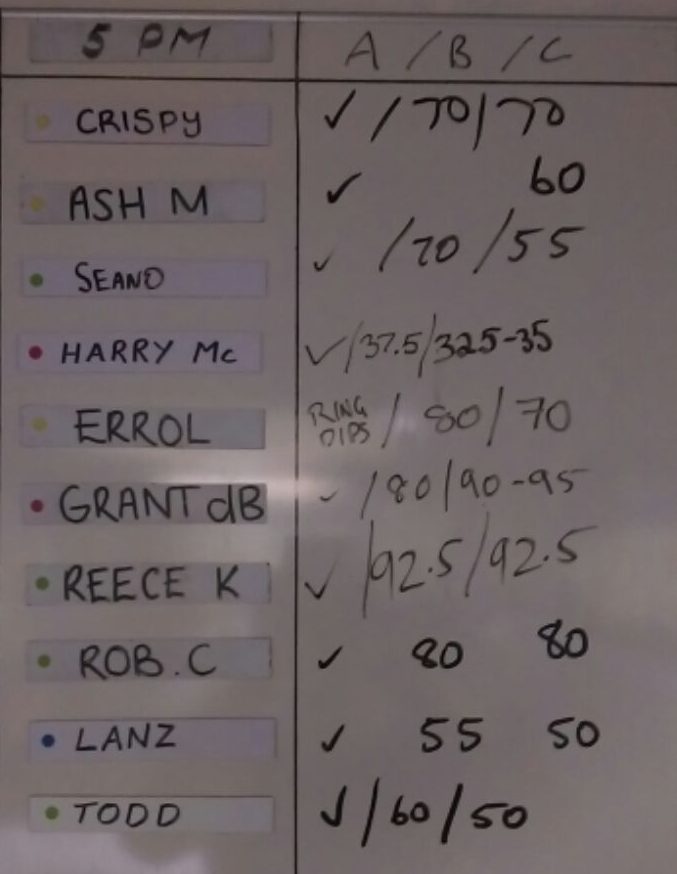 5 PM A / B / C
CRISPY ✓ / 70 / 70
ASH M ✓ 60
SEANO ✓ / 70 / 55
HARRY Mc ✓ / 37.5 / 32.5-35
ERROL RING DIPS / 80 / 70
GRANT dB ✓ / 80 / 90-95
REECE K ✓ / 92.5 / 92.5
ROB.C ✓ 80 80
LANZ ✓ 55 50
TODD ✓ / 60 / 50